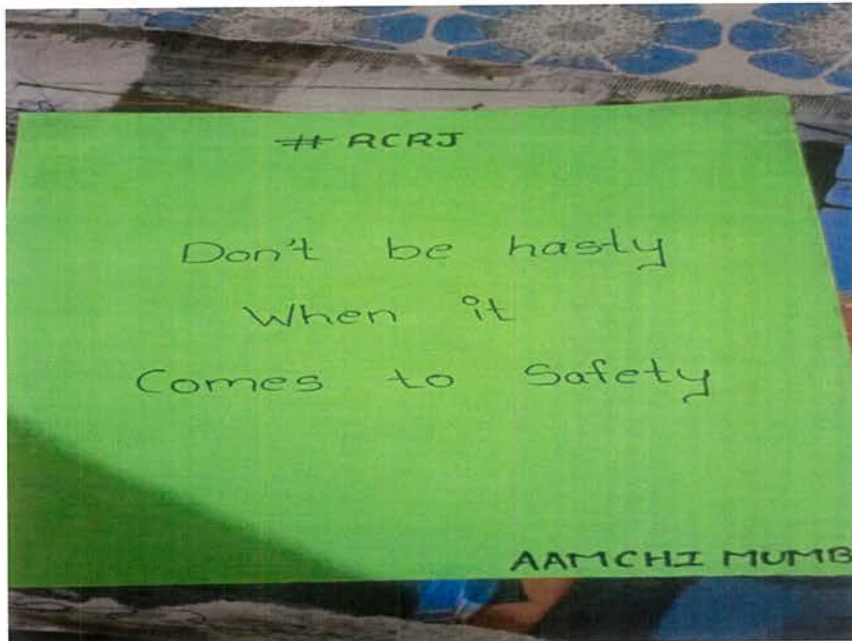 # RCRJ
Don't be hasty
When it
Comes to Safety
AAMCHI MUMB